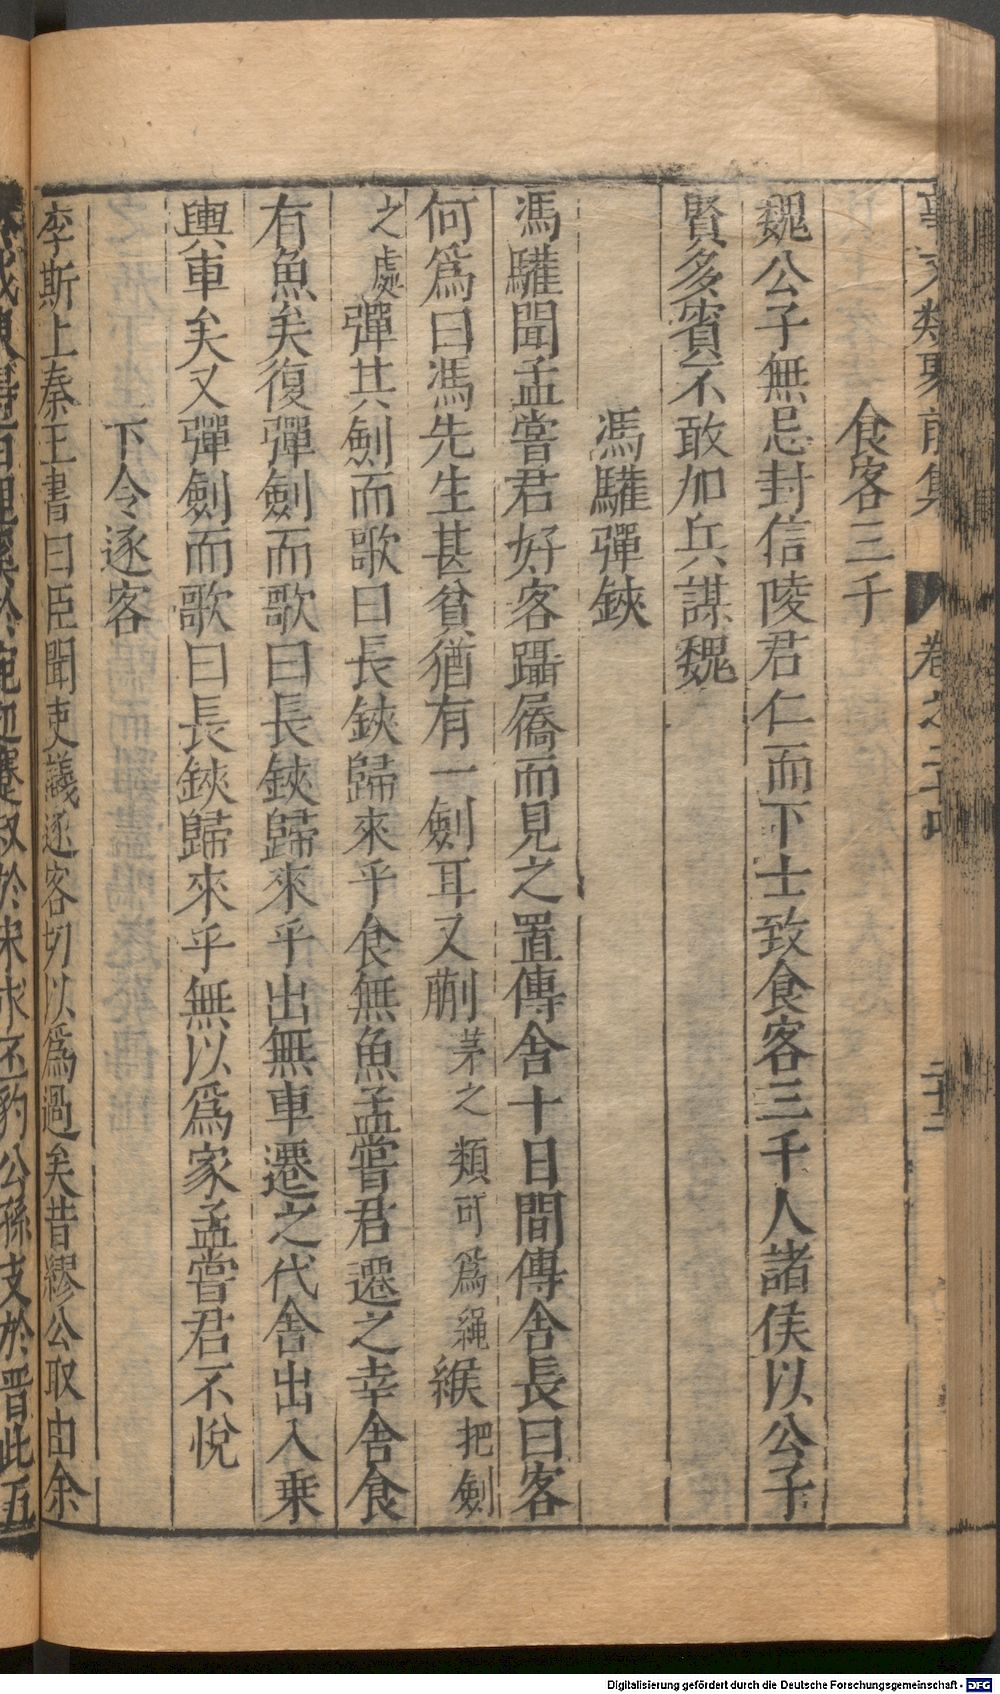 事文類聚前集 卷之二十四 二十二
食客三千
魏公子無忌封信陵君仁而下士致食客三千人諸侯以公子
賢多賓不敢加兵謀魏
馮驩彈鋏
馮驩聞孟嘗君好客躡屩而見之置傳舍十日間傳舍長曰客
何爲曰馮先生甚貧猶有一劍耳又蒯茅之類可爲繩緱把劍
之處彈其劍而歌曰長鋏歸來乎食無魚孟嘗君遷之幸舍食
有魚矣復彈劍而歌曰長鋏歸來乎出無車遷之代舍出入乘
輿車矣又彈劍而歌曰長鋏歸來乎無以爲家孟嘗君不悅
下令逐客
李斯上秦王書曰臣聞吏議逐客切以爲過矣昔繆公取由余
於戎東得百里奚於宛迎蹇叔於宋求丕豹公孫支於晋此五
Digitalisierung gefördert durch die Deutsche Forschungsgemeinschaft - DFG